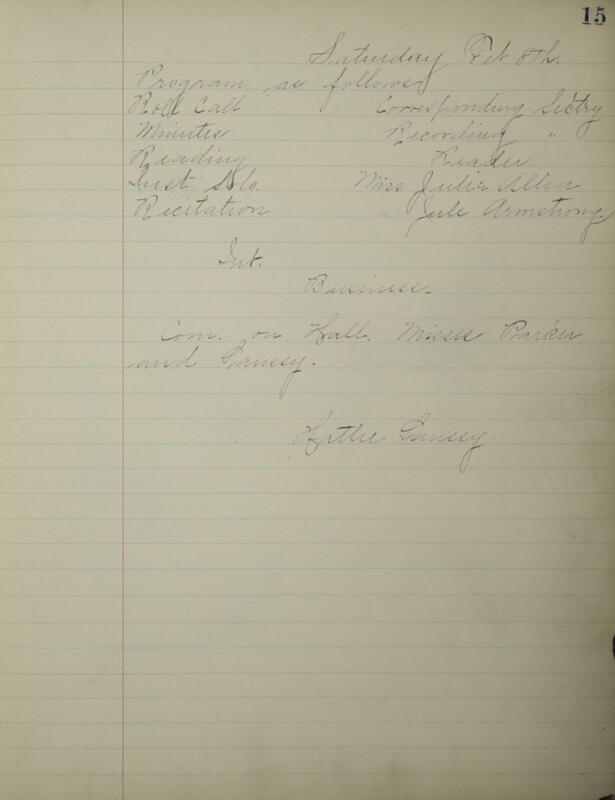 15
Saturday Feb 8th.
Program as follows
Roll Call Corresponding Sectry
Minutes Recording "
Reading Reader
Inst. Solo. Miss Julia Allen
Recitation " Jule Armstrong
Int.
Business.
Com. on Hall. Misses Parker
and Gaussy.
Hattie Gaussy.